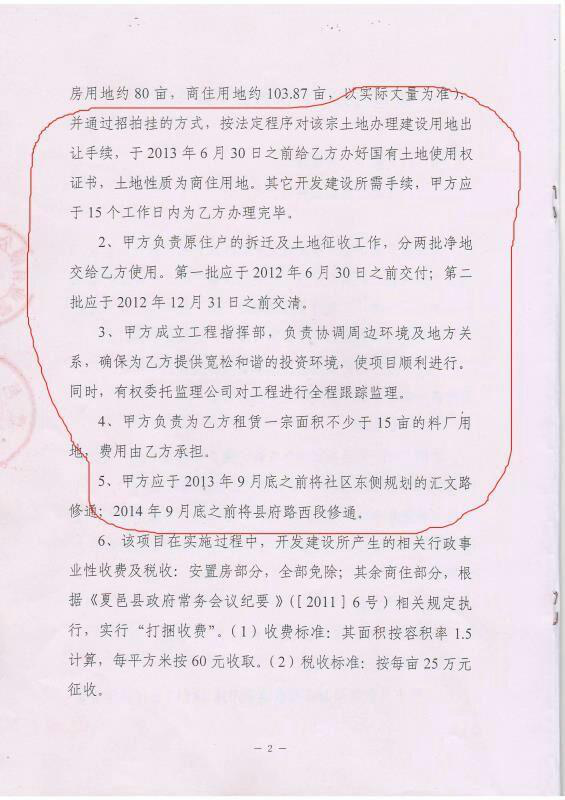 房用地约 80 亩，商住用地约 103.87 亩，以实际丈量为准），
并通过招拍挂的方式，按法定程序对该宗土地办理建设用地出
让手续，于 2013 年 6 月 30 日之前给乙方办好国有土地使用权
证书，土地性质为商住用地。其它开发建设所需手续，甲方应
于 15 个工作日内为乙方办理完毕。
2、甲方负责原住户的拆迁及土地征收工作，分两批净地
交给乙方使用。第一批应于 2012 年 6 月 30 日之前交付；第二
批应于 2012 年 12 月 31 日之前交清。
3、甲方成立工程指挥部，负责协调周边环境及地方关
系，确保为乙方提供宽松和谐的投资环境，使项目顺利进行。
同时，有权委托监理公司对工程进行全程跟踪监理。
4、甲方负责为乙方租赁一宗面积不少于 15 亩的料厂用
地，费用由乙方承担。
5、甲方应于 2013 年 9 月底之前将社区东侧规划的汇文路
修通；2014 年 9 月底之前将县府路西段修通。
6、该项目在实施过程中，开发建设所产生的相关行政事
业性收费及税收：安置房部分，全部免除；其余商住部分，根
据《夏邑县政府常务会议纪要》（[2011] 6 号）相关规定执
行，实行“打捆收费”。（1）收费标准：其面积按容积率 1.5
计算，每平方米按 60 元收取。（2）税收标准：按每亩 25 万元
征收。
— 2 —